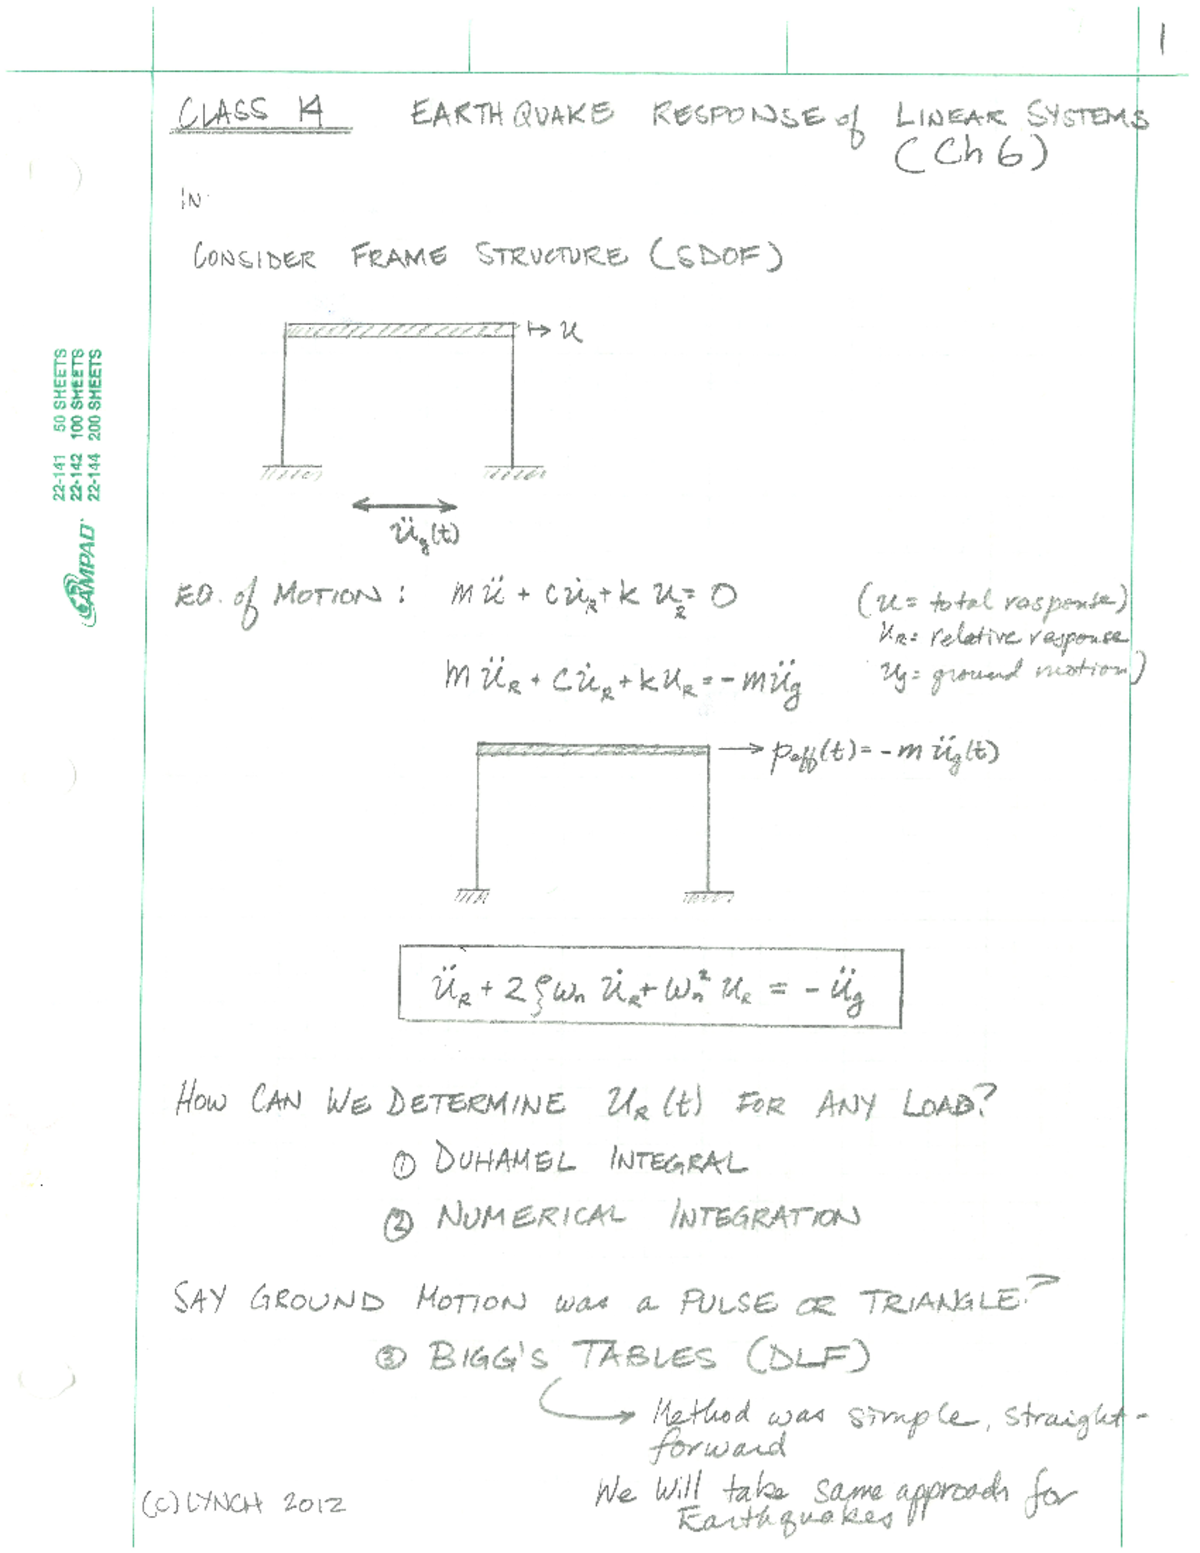 1
CLASS 14 EARTHQUAKE RESPONSE of LINEAR SYSTEMS
(Ch 6)
IN
CONSIDER FRAME STRUCTURE (SDOF)
u
üg(t)
22-141 50 SHEETS
22-142 100 SHEETS
22-144 200 SHEETS
AMPAD
EQ. of MOTION : mü + cu̇R + k uR = 0 (u = total response)
uR = relative response
müR + cu̇R + kuR = -müg ug = ground motion)
peff(t) = -m üg(t)
üR + 2ξωn u̇R + ωn² uR = - üg
HOW CAN WE DETERMINE uR(t) FOR ANY LOAD?
① DUHAMEL INTEGRAL
② NUMERICAL INTEGRATION
SAY GROUND MOTION was a PULSE OR TRIANGLE?
③ BIGG'S TABLES (DLF)
Method was simple, straight-
forward
We Will take same approach for
Earthquakes
(C) LYNCH 2012